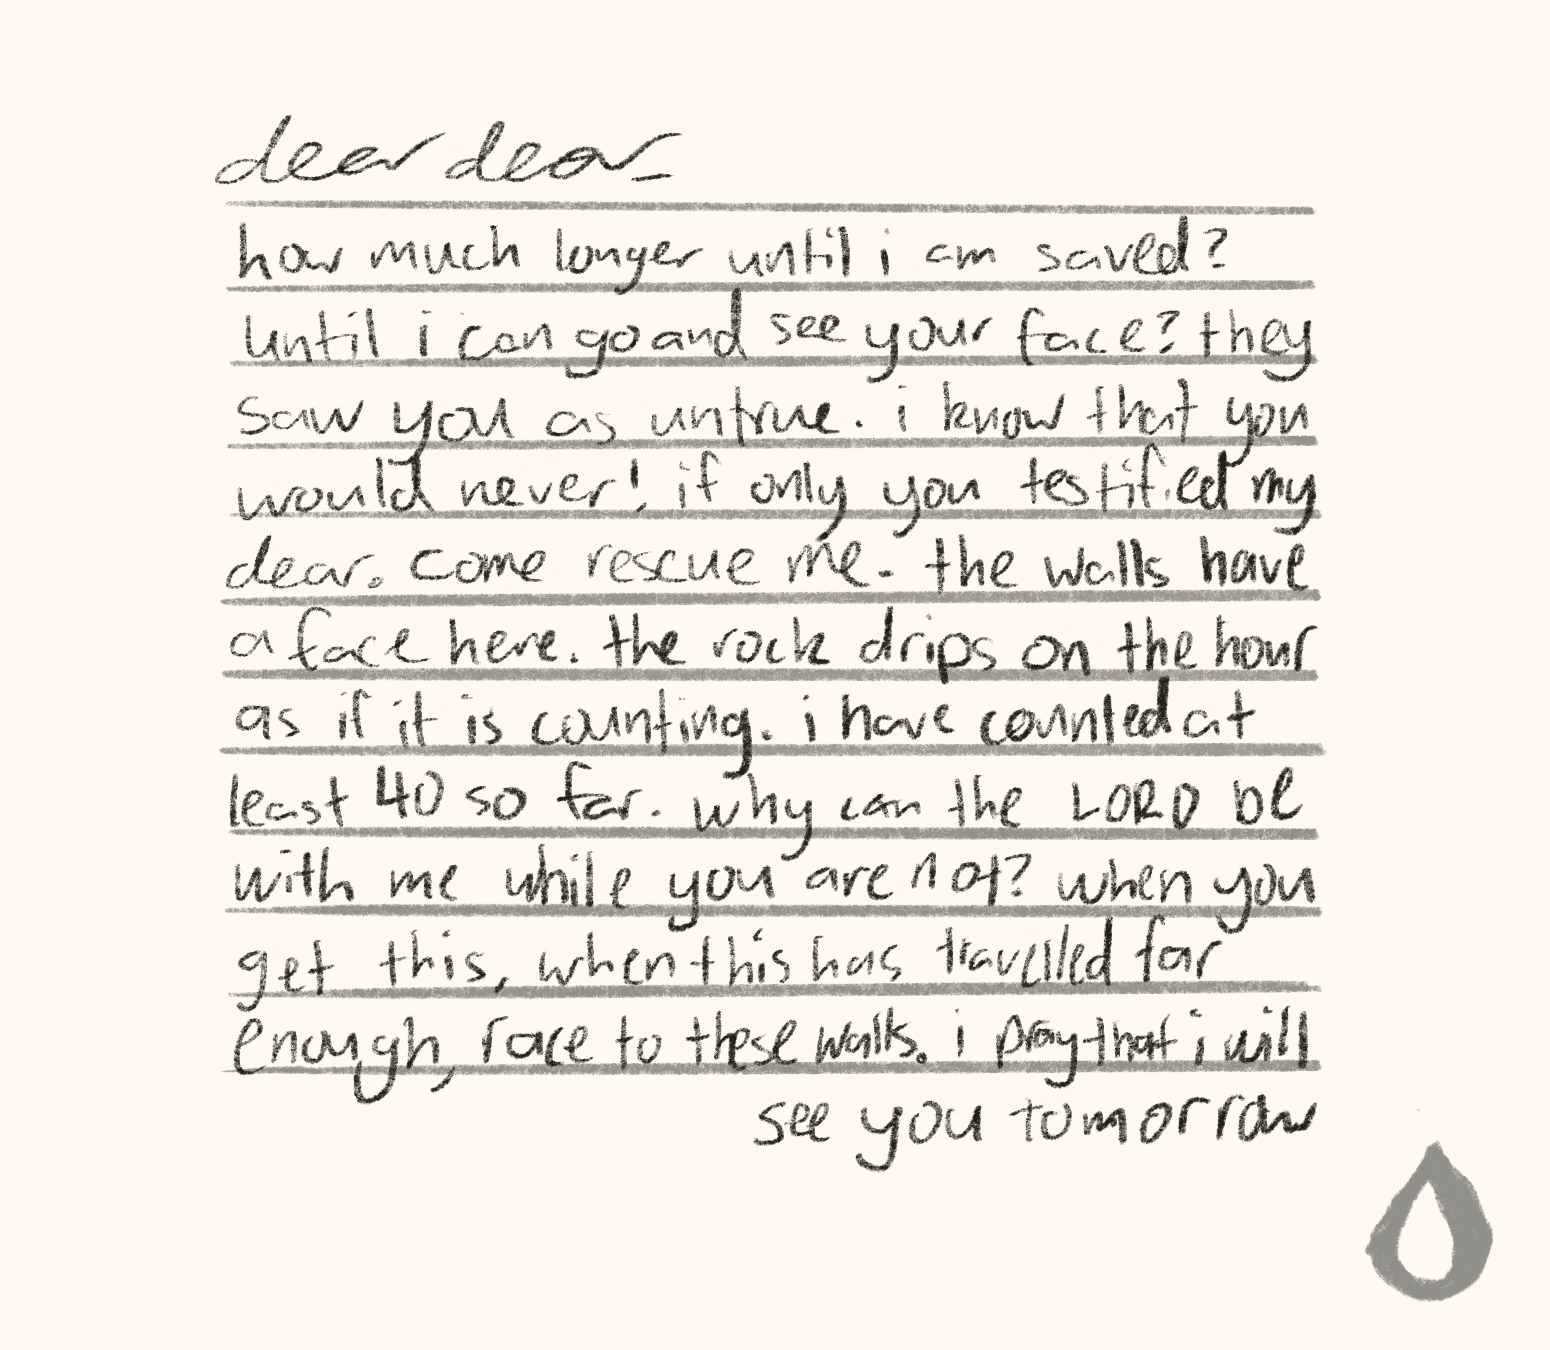 dear dear_
how much longer until i am saved?
until i can go and see your face? they
saw you as untrue. i know that you
would never! if only you testified my
dear. come rescue me. the walls have
a face here. the rock drips on the hour
as if it is counting. i have counted at
least 40 so far. why can the LORD be
with me while you are not? when you
get this, when this has travelled far
enough, race to these walls. i pray that i will
see you tomorrow